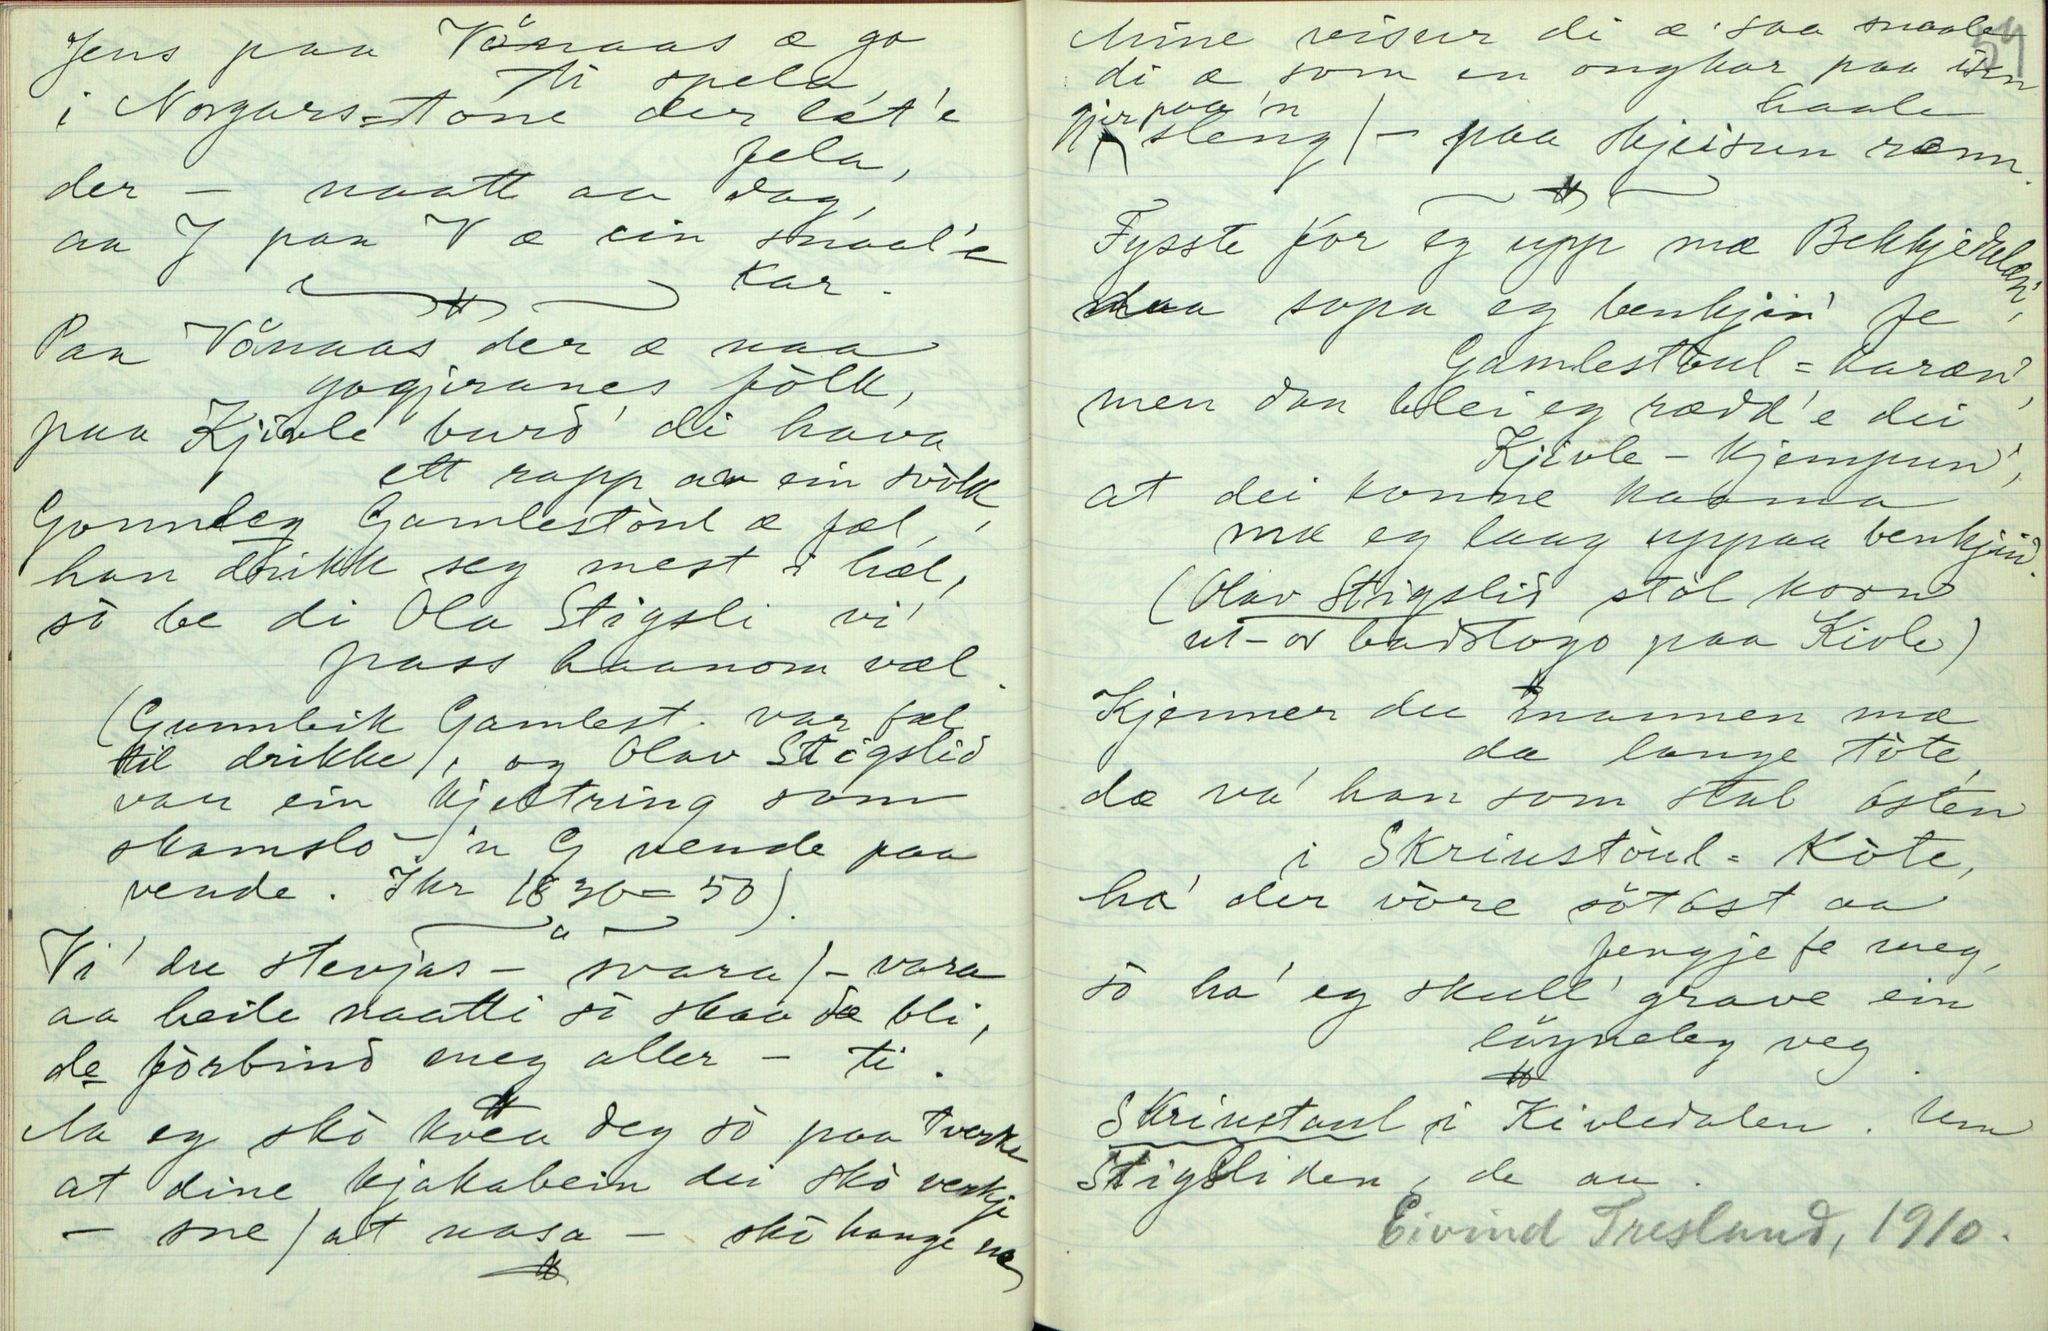 Jens paa Vånaas æ go
ti spela,
i Norgars-tone der lét'e
fela,
der — naatt aa dag,
aa J paa V æ ein snaal'e
kar.
Paa Vånaas der æ naa
gogjeranes fólk,
paa Kjivle burd' di hava
ett rapp av ein svólk,
Gonnleg Gamlestòul æ fæl,
han drikk seg mest i hæl,
sò be di Ola Stigsli vi'
pass haanom væl.
(Gunnleik Gamlest. var fæl
til drikke), og Olav Stigslid
var ein kjeltring som
skamslo 'n G vende paa
vende. Ikr 1830-50).
Vi' du stevjas — svara) — vara
aa heile naatti sò skaa dæ bli,
de fórbind meg aller — ti.
Aa eg skò kvea deg sò paa tverke
at dine kjakabein dei skò verkje
— sne) at nasa — skò hange ne
54
Mine visur di æ saa snaale
di æ som en ongkar paa isen
haale
gjer paa 'n
sleng) — paa skjeisun renn.
Fysste for eg upp mæ Bekkjedalæn',
daa sopa eg benkjin' fe
Gamlestòul-karæn',
men daa blei eg rædd'e dei
Kjivle-kjempun',
at dei konne kaama
mæ eg laag uppaa benkjin'.
(Olav Stigslid stòl korn
ut-or badstogo paa Kivle)
Kjenner du mannen mæ
dæ lange tòte,
dæ va' han som stal òsten
i Skrinstòul-Kòte,
ha' der vòre sòtòst aa
fengje fe meg,
sò ha' eg skull' grave ein
löyneleg veg.
Skrinstaul i Kivledalen. Um
Stigsliden, de au.
Eivind Tresland, 1910.